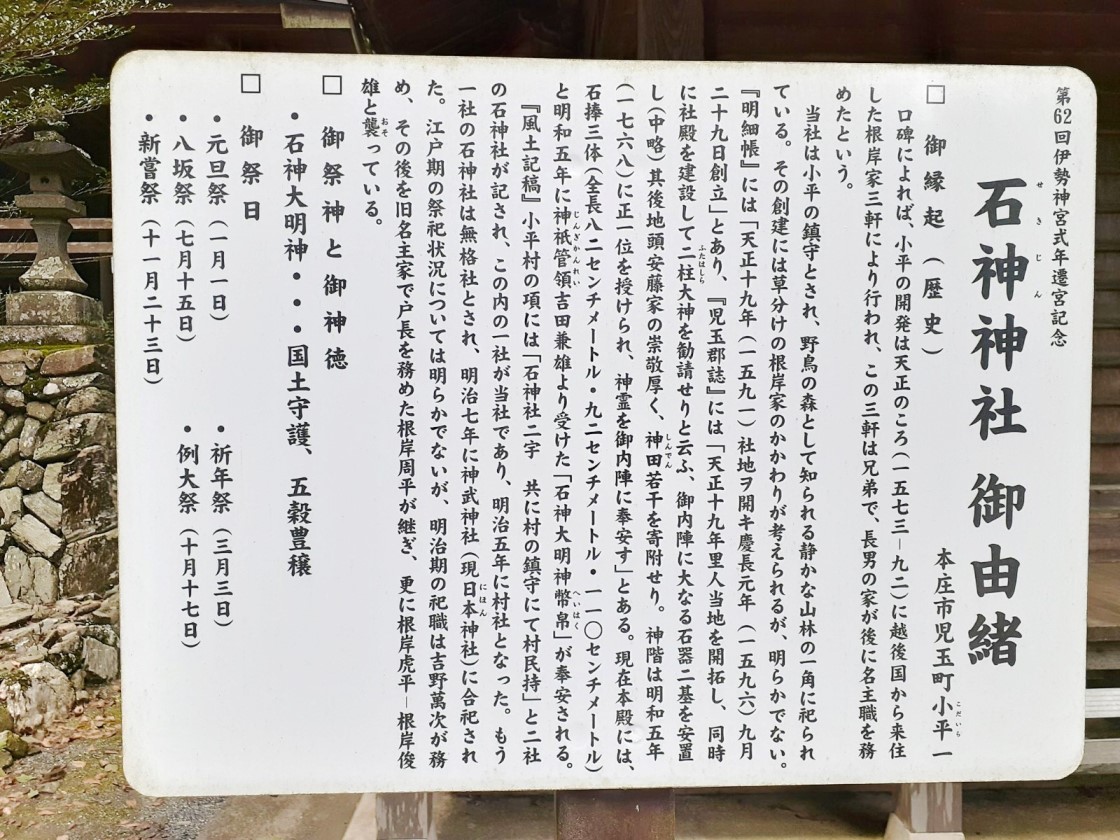 第62回伊勢神宮式年遷宮記念
石神神社 御由緒
せきじん
本庄市児玉町小平一
こだいら
□ 御縁起（歴史）
口碑によれば、小平の開発は天正のころ(一五七三―九二)に越後国から来住
した根岸家三軒により行われ、この三軒は兄弟で、長男の家が後に名主職を務
めたという。
当社は小平の鎮守とされ、野鳥の森として知られる静かな山林の一角に祀られ
ている。その創建には草分けの根岸家のかかわりが考えられるが、明らかでない。
『明細帳』には「天正十九年（一五九一）社地ヲ開キ慶長元年（一五九六）九月
二十九日創立」とあり、『児玉郡誌』には「天正十九年里人当地を開拓し、同時
に社殿を建設して二柱大神を勧請せりと云ふ、御内陣に大なる石器二基を安置
ふたはしら
し(中略)其後地頭安藤家の崇敬厚く、神田若干を寄附せり。神階は明和五年
しんでん
(一七六八)に正一位を授けられ、神霊を御内陣に奉安す」とある。現在本殿には、
石捧三体(全長八二センチメートル・九二センチメートル・一一〇センチメートル)
と明和五年に神祇管領吉田兼雄より受けた「石神大明神幣帛」が奉安される。
じんぎかんれい
へいはく
『風土記稿』小平村の項には「石神社二宇　共に村の鎮守にて村民持」と二社
の石神社が記され、この内の一社が当社であり、明治五年に村社となった。もう
一社の石神社は無格社とされ、明治七年に神武神社(現日本神社)に合祀され
にほん
た。江戸期の祭祀状況については明らかでないが、明治期の祀職は吉野萬次が務
め、その後を旧名主家で戸長を務めた根岸周平が継ぎ、更に根岸虎平―根岸俊
雄と襲っている。
おそ
□ 御祭神と御神徳
・石神大明神・・・国土守護、五穀豊穣
□ 御祭日
・元旦祭（一月一日）　・祈年祭（三月三日）
・八坂祭（七月十五日）　・例大祭（十月十七日）
・新嘗祭（十一月二十三日）